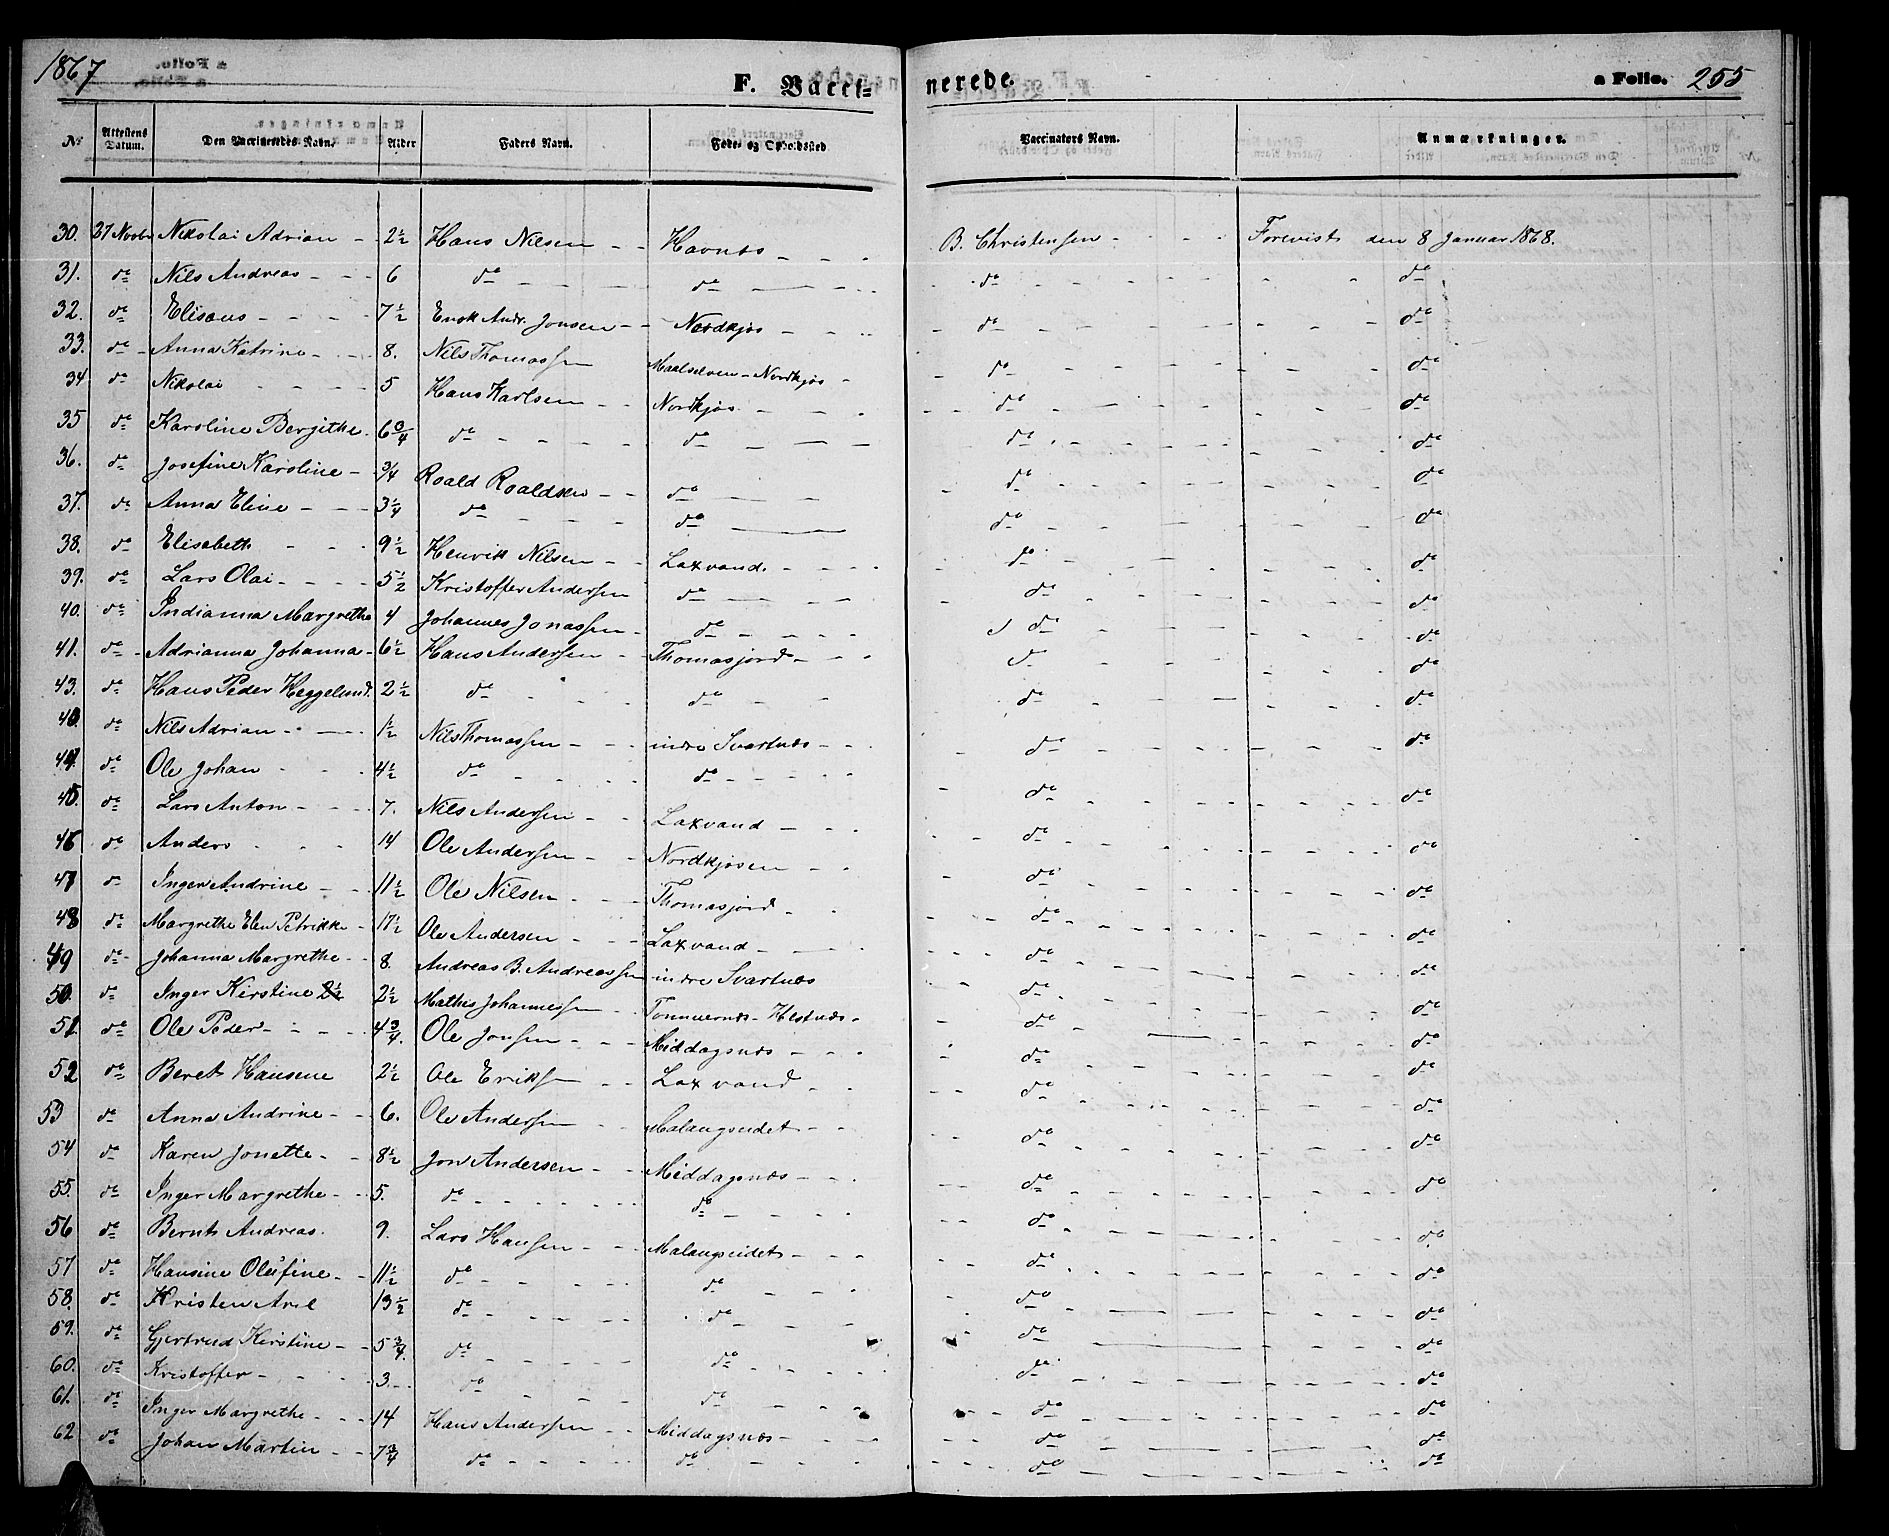 1867 F. Vacci- nerede. a Folio. 255
Nr. Attestens Datum. Den Vaccineredes Navn. Alder Faders Navn. Føde- og Opholdssted Vaccinators Navn. Anmærkninger.
30. 27 Novbr Nikolai Adrian - 2½ Hans Nilsen - - Havnæs - - - B. Christensen - - - - Forevist den 8 Januar 1868.
31. do Nils Andreas - - - 6 do do do do
32. do Elisæus - - - - 7½ Enok Andr. Jonsen - - Nordkjos - - - do do
33. do Anna Katrine - - - 8. Nils Thomassen Maalselven - Nordkjos - do do
34 do Nikolai - - - - 5 Hans Karlsen - - Nordkjos - - - do do
35 do Karoline Bergithe 6¾ do do do do
36. do Josefine Karoline - ¾ Roald Roaldsen - - do do do
37. do Anna Eline - - - 3¼ do do do do
38. do Elisabeth - - - 9½ Henrik Nilsen - - Laxvand. - - - do do
39. do Lars Olai - - - - 5½ Kristoffer Andersen do do do
40. do Indianna Margrethe 4 Johannes Jonassen - do do do
41. do Adrianna Johanna - 6½ Hans Andersen - - Thomasjord - - - do do
43. do Hans Peder Heggelund. 2½ do do do do
43. do Nils Adrian - - - 1½ Nils Thomassen - - - indre Svartnæs - - - do do
44. do Ole Johan - - - 4½ do do do do
45. do Lars Anton - - - - 7. Nils Andersen - - Laxvand - - - do do
46 do Anders - - - 14 Ole Andersen - - Nordkjosen - - do do
47 do Inger Andrine - - 11½ Ole Nilsen - - - Thomasjord - - do do
48 do Margrethe Elen Petrikke - 17½ Ole Andersen - - - Laxvand - - - do do
49 do Johanna Margrethe - - 8. Andreas B. Andreassen indre Svartnæs do do
50. do Inger Kirstine 2½ 2½ Mathis Johannessen - - Hestnæs - do do
51. do Ole Peder - - - - 4¾. Ole Jonsen - - - Middagsnæs - - - do do
52 do Beret Hansene 2½ Ole Eriksen - - Laxvand - - do do
53 do Anna Andrine - - 6. Ole Andersen - - Malangseidet - - do do
54 do Karen Jonette - - 8½ Jon Andersen - - Middagsnæs - - - do do
55. do Inger Margrethe - - 5. do do do do
56 do Bernt Andreas. 9. Lars Hansen - - - Malangseidet - - - do do
57 do Hansine Olufine - - 11½ do do do do
58. do Kristen Arel 13½ do do do do
59. do Gjertrud Kirstine - - 5¾. do do do do
60. do Kristoffer - - - - 3. - - do do do do
61. do Inger Margrethe - - - 14 Hans Andersen - - Middagsnæs - - - do do
62 do Johan Martin - - 7¾ do do do do